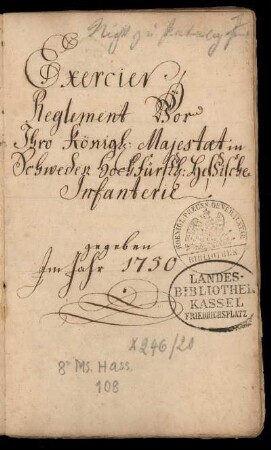 Nicht zu Katalog
Exercier
Reglement Vor
Ihro Königl: Majestat in
Schweden Hochfürstl: Hessische
Infanterie
gegeben
Im Jahr 1750
BIBLIOTHEK
LANDES-
BIBLIOTHEK
KASSEL
FRIEDRICHSPLATZ
x 246/20
8° Ms. Hass.
108